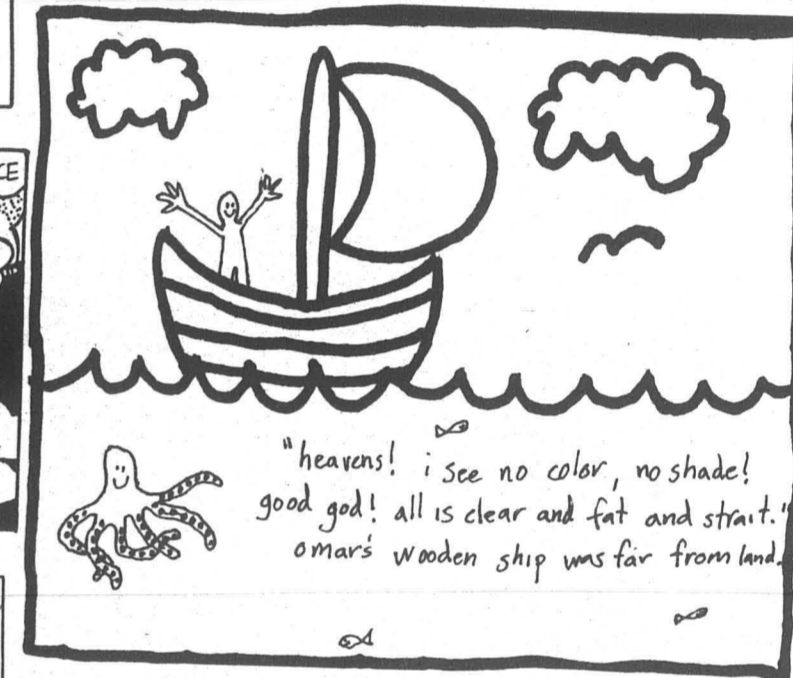 CE
"heavens! i see no color, no shade!
good god! all is clear and fat and strait."
omar's wooden ship was far from land.